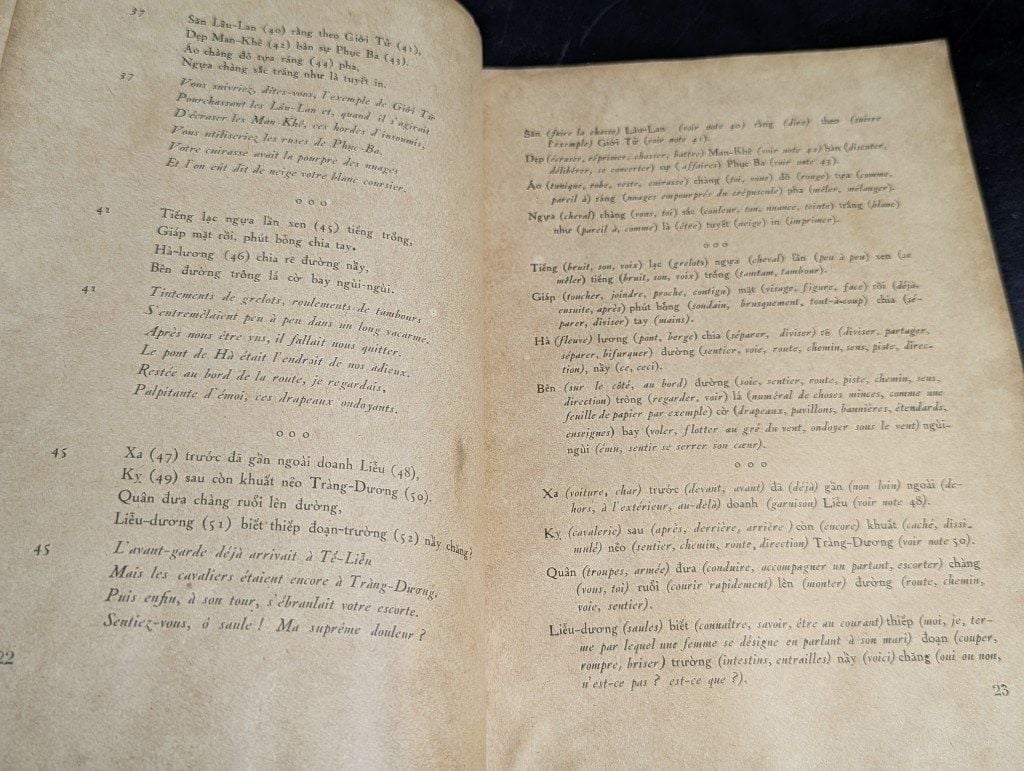 37
Săn Lâu-Lan (40) rằng theo Giới Tử (41),
Dẹp Man-Khê (42) bàn sự Phục Ba (43).
Áo chàng đỏ tựa ráng (44) pha,
Ngựa chàng sắc trắng như là tuyết in.
37
Vous suivriez, dites-vous, l'exemple de Giới Tử
Pourchassant les Lâu-Lan et, quand il s'agirait
D'écraser les Man-Khê, ces hordes d'insoumis,
Vous utiliseriez les ruses de Phuc-Ba.
Votre cuirasse avait la pourpre des nuages
Et l'on eût dit de neige votre blanc coursier.
o o o
41
Tiếng lạc ngựa lần xen (45) tiếng trống,
Giáp mặt rồi, phút bỗng chia tay.
Hà-lương (46) chia rẽ đường nầy,
Bên đường trông lá cờ bay ngùi-ngùi.
41
Tintements de grelots, roulements de tambours
S'entremêlaient peu à peu dans un long vacarme.
Après nous être vus, il fallait nous quitter.
Le pont de Hà était l'endroit de nos adieux.
Restée au bord de la route, je regardais,
Palpitante d'émoi, ces drapeaux ondoyants.
o o o
45
Xa (47) trước đã gần ngoài doanh Liễu (48),
Kỵ (49) sau còn khuất nẻo Tràng-Dương (50).
Quân đưa chàng ruổi lên đường,
Liễu-dương (51) biết thiếp đoạn-trường (52) nầy chăng?
45
L'avant-garde déjà arrivait à Tế-Liễu
Mais les cavaliers étaient encore à Tràng-Dương,
Puis enfin, à son tour, s'ébranlait votre escorte.
Sentiez-vous, ô saule ! Ma suprême douleur ?
22
Săn (faire la chasse) Lâu-Lan (voir note 40) rằng (dire) theo (suivre
l'exemple) Giới Tử (voir note 41).
Dẹp (écraser, réprimer, chasser, battre) Man-Khê (voir note 42) bàn (discuter,
délibérer, se concerter) sự (affaires) Phục Ba (voir note 43).
Áo (tunique, robe, veste, cuirasse) chàng (toi, vous) đỏ (rouge) tựa (comme,
pareil à) ráng (nuages empourprés du crépuscule) pha (mêler, mélanger).
Ngựa (cheval) chàng (vous, toi) sắc (couleur, ton, nuance, teinte) trắng (blanc)
như (pareil à, comme) là (être) tuyết (neige) in (imprimer).
o o o
Tiếng (bruit, son, voix) lạc (grelots) ngựa (cheval) lần (peu à peu) xen (se
mêler) tiếng (bruit, son, voix) trống (tamtam, tambour).
Giáp (toucher, joindre, proche, contigu) mặt (visage, figure, face) rồi (déjà,
ensuite, après) phút bỗng (soudain, brusquement, tout-à-coup) chia (sé-
parer, diviser) tay (mains).
Hà (fleuve) lương (pont, berge) chia (séparer, diviser) rẽ (diviser, partager,
séparer, bifurquer) đường (sentier, voie, route, chemin, sens, piste, direc-
tion), nầy (ce, ceci).
Bên (sur le côté, au bord) đường (voie, sentier, route, piste, chemin, sens,
direction) trông (regarder, voir) lá (numéral de choses minces, comme une
feuille de papier par exemple) cờ (drapeaux, pavillons, bannières, étendards,
enseignes) bay (voler, flotter au gré du vent, ondoyer sous le vent) ngùi-
ngùi (ému, sentir se serrer son cœur).
o o o
Xa (voiture, char) trước (devant, avant) đã (déjà) gần (non loin) ngoài (de-
hors, à l'extérieur, au-delà) doanh (garnison) Liễu (voir note 48).
Kỵ (cavalerie) sau (après, derrière, arrière) còn (encore) khuất (caché, dissi-
mulé) nẻo (sentier, chemin, route, direction) Tràng-Dương (voir note 50).
Quân (troupes, armée) đưa (conduire, accompagner un partant, escorter) chàng
(vous, toi) ruổi (courir rapidement) lên (monter) đường (route, chemin,
voie, sentier).
Liễu-dương (saules) biết (connaître, savoir, être au courant) thiếp (moi, je, ter-
me par lequel une femme se désigne en parlant à son mari) đoạn (couper,
rompre, briser) trường (intestins, entrailles) nầy (voici) chăng (oui ou non,
n'est-ce pas ? est-ce que ?).
23